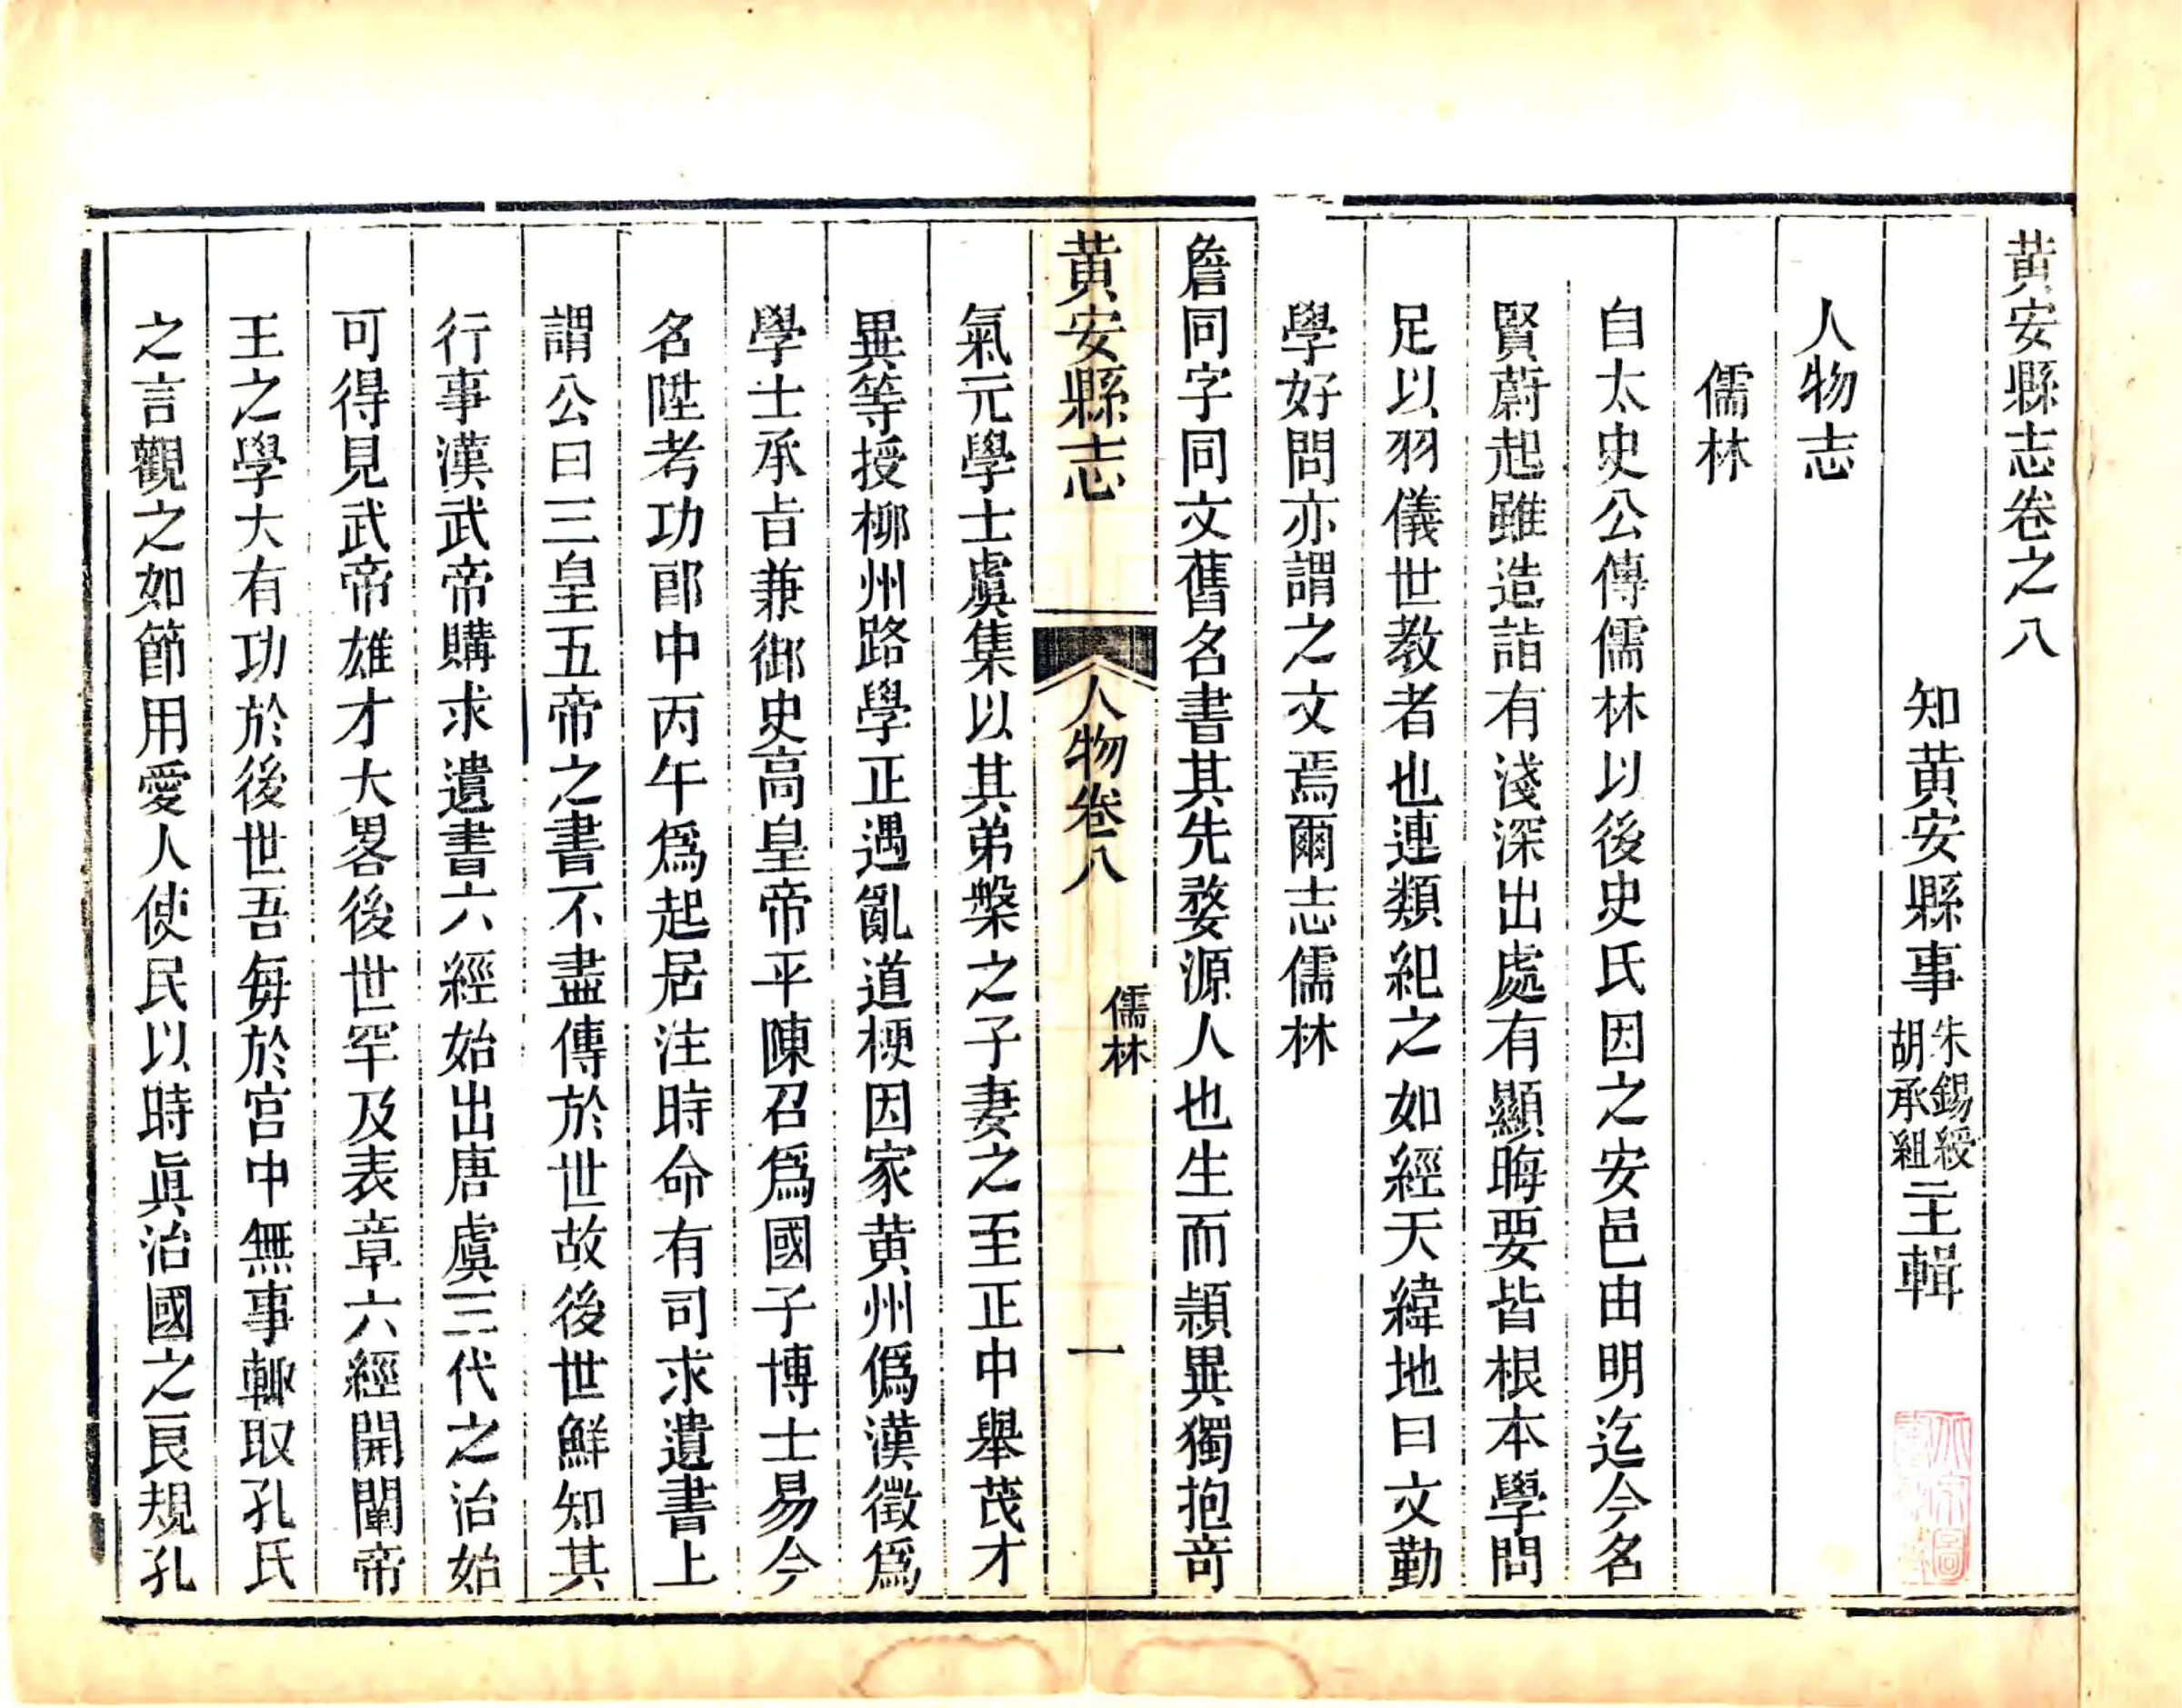 黄安縣志卷之八
知黄安縣事朱錫綬胡承組主輯
人物志
儒林
自太史公傳儒林以後史氏因之安邑由明迄今名
賢蔚起雖造詣有淺深出處有顯晦要皆根本學問
足以羽儀世教者也連類紀之如經天緯地曰文勤
學好問亦謂之文焉爾志儒林
詹同字同文舊名書其先婺源人也生而頴異獨抱竒
黄安縣志
人物卷八
儒林
一
氣元學士虞集以其弟槃之子妻之至正中舉茂才
異等授柳州路學正遇亂道梗因家黄州僞漢徵爲
學士承旨兼御史高皇帝平陳召爲國子博士易今
名陞考功郎中丙午爲起居注時命有司求遺書上
謂公曰三皇五帝之書不盡傳於世故後世鮮知其
行事漢武帝購求遺書六經始出唐虞三代之治始
可得見武帝雄才大畧後世罕及表章六經開闡帝
王之學大有功於後世吾每於宫中無事輙取孔氏
之言觀之如節用愛人使民以時眞治國之良規孔